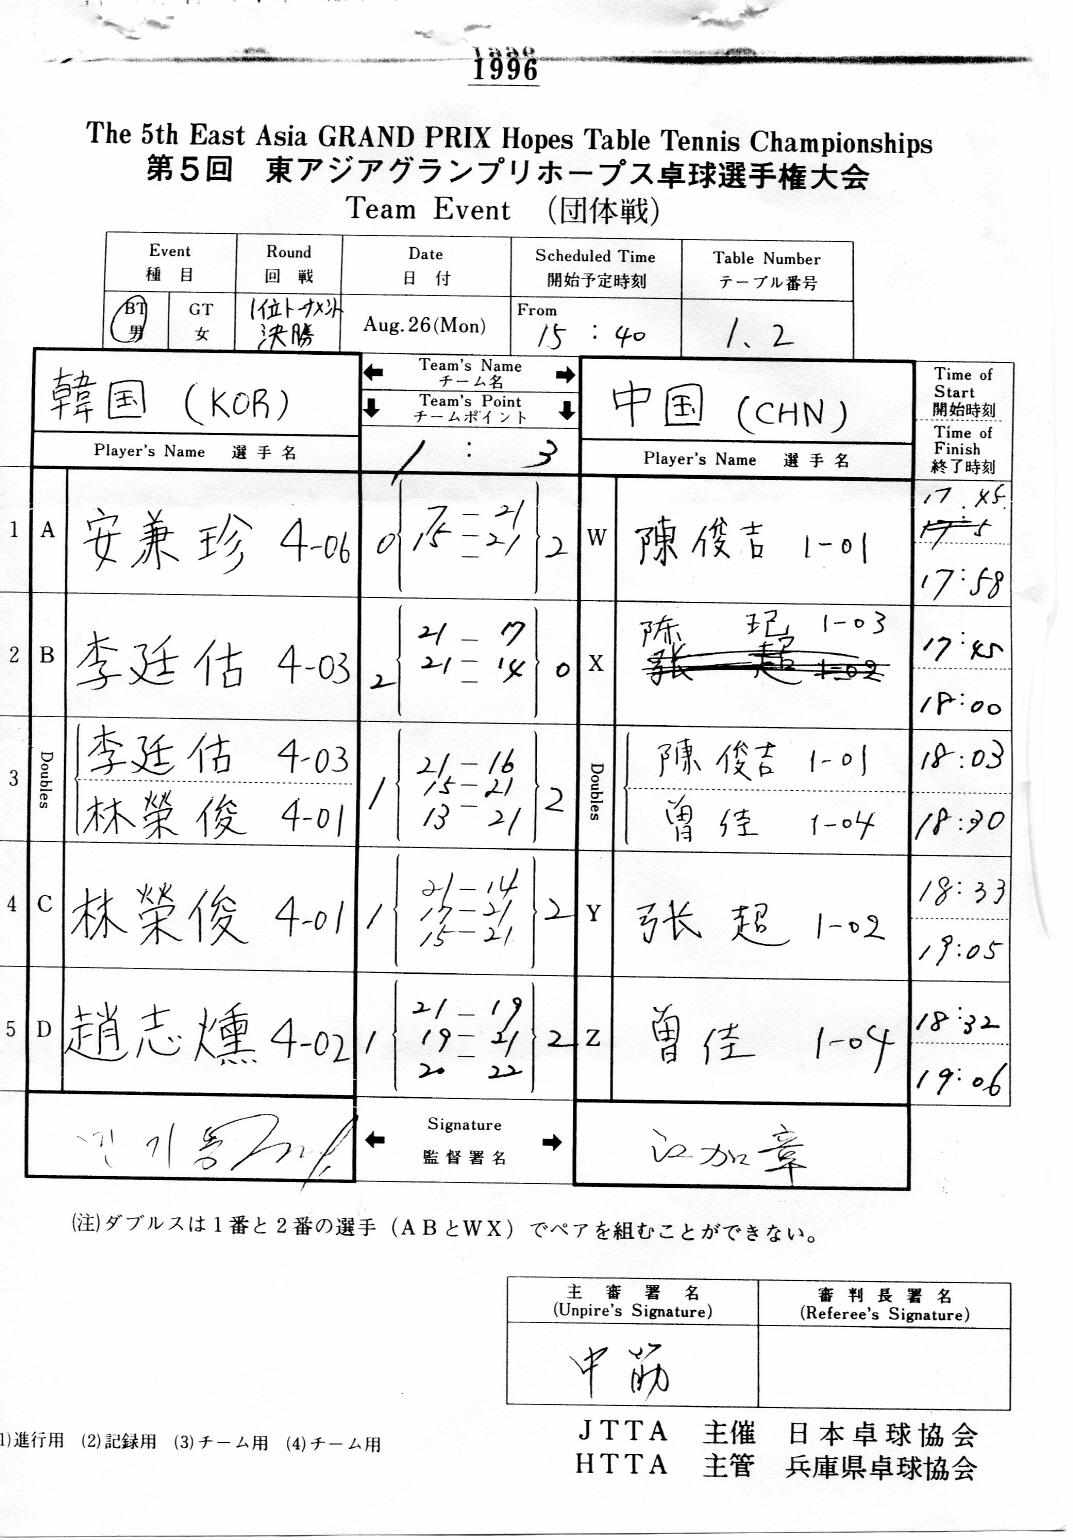 1996
The 5th East Asia GRAND PRIX Hopes Table Tennis Championships
第5回 東アジアグランプリホープス卓球選手権大会
Team Event (団体戦)
Event Round Date Scheduled Time Table Number
種目 回戦 日付 開始予定時刻 テーブル番号
BT GT 1位トーナメント Aug. 26(Mon) From
男 女 決勝 15 : 40 1、2
韓国 (KOR) Team's Name 中国 (CHN) Time of
チーム名 Start
Team's Point 開始時刻
チームポイント Time of
Player's Name 選手名 1 : 3 Player's Name 選手名 Finish
終了時刻
1 A 安兼珍 4-06 0 7 - 21 2 W 陳俊吉 1-01 17:45
15 - 21 17:58
2 B 李廷佑 4-03 2 21 - 17 0 X 陈玘 1-03 17:45
21 - 14 张超 1-02 18:00
3 Doubles 李廷佑 4-03 1 21 - 16 2 Doubles 陳俊吉 1-01 18:03
15 - 21
林榮俊 4-01 13 21 曽佳 1-04 18:30
4 C 林榮俊 4-01 1 21 - 14 2 Y 张超 1-02 18:33
17 - 21
15 - 21 19:05
5 D 趙志燻 4-02 1 21 - 19 2 Z 曽佳 1-04 18:32
19 - 21
20 22 19:06
Signature
監督署名 江加章
(注)ダブルスは1番と2番の選手(ABとWX)でペアを組むことができない。
主審署名 審判長署名
(Unpire's Signature) (Referee's Signature)
中筋
JTTA 主催 日本卓球協会
1)進行用 (2)記録用 (3)チーム用 (4)チーム用
HTTA 主管 兵庫県卓球協会